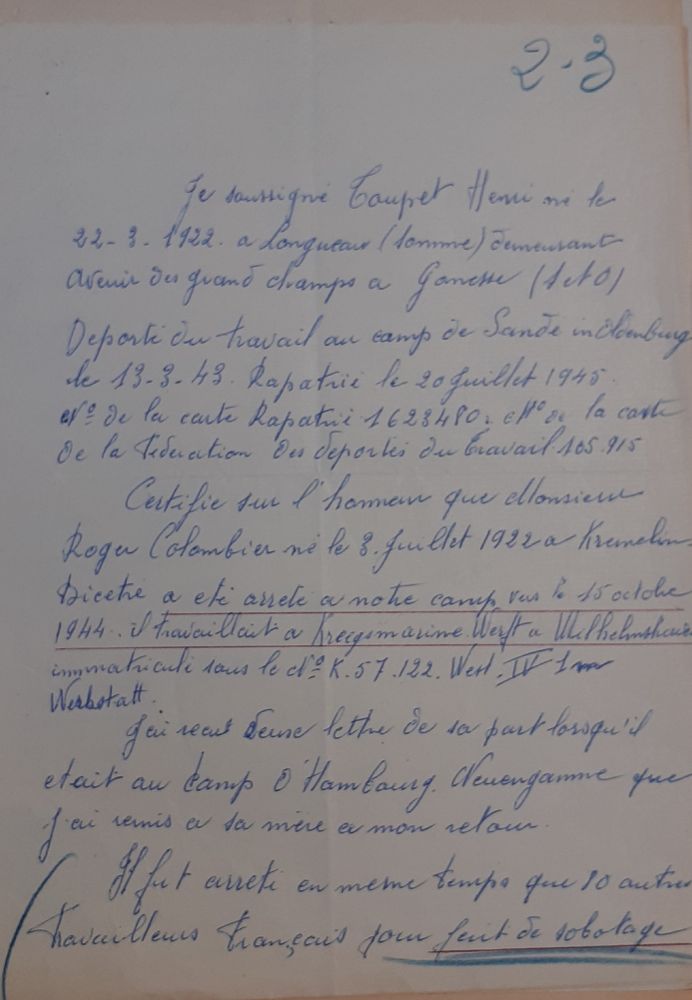 2-3
Je soussigné Toupet Henri né le
22-3-1922. a Longueau (Somme) demeurant
Avenir des grand champs a Gonesse (S et O)
Deporté du travail au camp de Sande in Oldenburg
le 13-3-43. Rapatrié le 20 Juillet 1945.
N° de la carte Rapatrié 1623480. N° de la carte
de la Féderation des deportés du Travail 105.915
Certifie sur l'honneur que Monsieur
Roger Colombier né le 3. Juillet 1922 a Kremelin-
Bicetre a eté arreté a notre camp vers le 15 octobre
1944. il travaillait a Kreigsmarine Werft a Wilhelmshaven
immatriculé sous le N° K.57.122. West. IV 1
Werkstatt.
J'ai recu deux lettre de sa part lorsqu'il
etait au Camp d'Hambourg. Neuengamme que
J'ai remis a sa mère a mon retour.
Il fut arreté en meme temps que 10 autres
travailleurs Français pour fait de sabotage